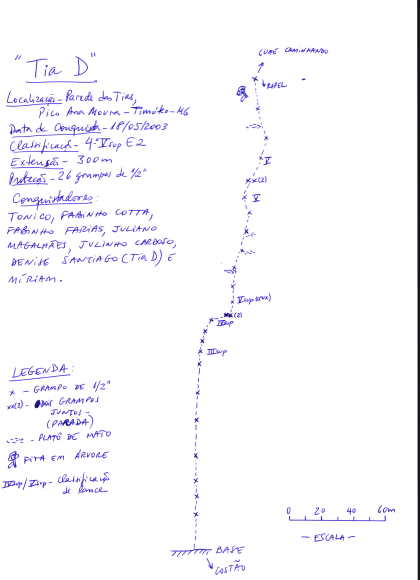 "Tia D"
Localização - Parede das Tias,
Pico Ana Moura - Timóteo - MG
Data da Conquista - 18/05/2003
Classificação - 4º Vsup E2
Extensão - 300m
Proteção - 26 grampos de 1/2"
Conquistadores:
TONICO, FABINHO COTTA,
FABINHO FARIAS, JULIANO
MAGALHÃES, JULINHO CARDOSO,
DENISE SANTIAGO (Tia D) E
MÍRIAM.
CUME CAMINHANDO
RAPEL
V
xx(2)
V
Vsup (crux)
xx(2)
IVsup
IIIsup
LEGENDA:
x - GRAMPO DE 1/2"
xx(2) - DOIS GRAMPOS
JUNTOS -
(PARADA)
- PLATÔ DE MATO
FITA EM ÁRVORE
IVsup/Vsup - Classificação
de lance
0 20 40 60m
- ESCALA -
BASE
COSTÃO